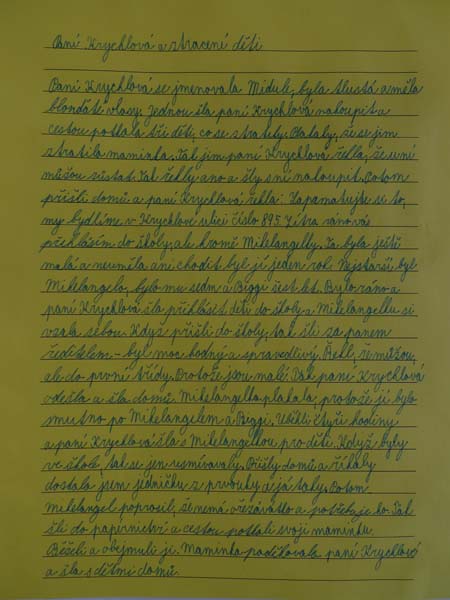 Paní Krychlová a ztracené děti
Paní Krychlová se jmenovala Midule, byla tlustá a měla
blonďaté vlasy. Jednou šla paní Krychlová nakoupit a
cestou potkala tři děti, co se ztratily. Plakaly, že se jim
ztratila maminka. Tak jim paní Krychlová řekla, že u ní
můžou zůstat. Tak řekly ano a šly s ní nakoupit. Potom
přišli domů a paní Krychlová řekla: Zapamatujte se to,
my bydlíme v Krychlové ulici číslo 895. Zítra ráno vás
přihlásím do školy, ale kromě Mikelangelly. Ta byla ještě
malá a neuměla ani chodit byl jí jeden rok. Nejstarší byl
Mikelangelo, bylo mu sedm a Peggi šest let. Bylo ráno a
paní Krychlová šla přihlásit děti do školy a Mikelangelku si
vzala sebou. Když přišli do školy, tak šli za panem
ředitelem - byl moc hodný a spravedlivý. Řekl, že můžou,
ale do první třídy. Protože jsou malé. Tak paní Krychlová
odešla a šla domů. Mikelangelka plakala, protože jí bylo
smutno po Mikelangelem a Peggi. Utekli čtyři hodiny
a paní Krychlová šla s Mikelangelkou pro děti. Když byly
ve škole, tak se jen usmívavaly. Přišly domů a říkaly
dostala jsem jedničku z prvouky a já taky. Potom
Mikelangel poprosil, že nemá ořezávátko a potřebuje ho. Tak
šli do papírnictví a cestou potkali svoji maminku.
Běželi a objemuli ji. Maminka poděkovala paní Krychlové
a šla s dětmi domů.